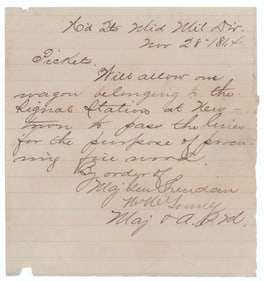 Hd Qts Mid Mil Div.
Nov 28" 1864
Pickets.
Will allow one
wagon belonging to the
Signal Station at New-
town to pass the lines
for the purpose of procu
ring fire wood.
By order of
Maj Gen Sheridan
Maj & A.